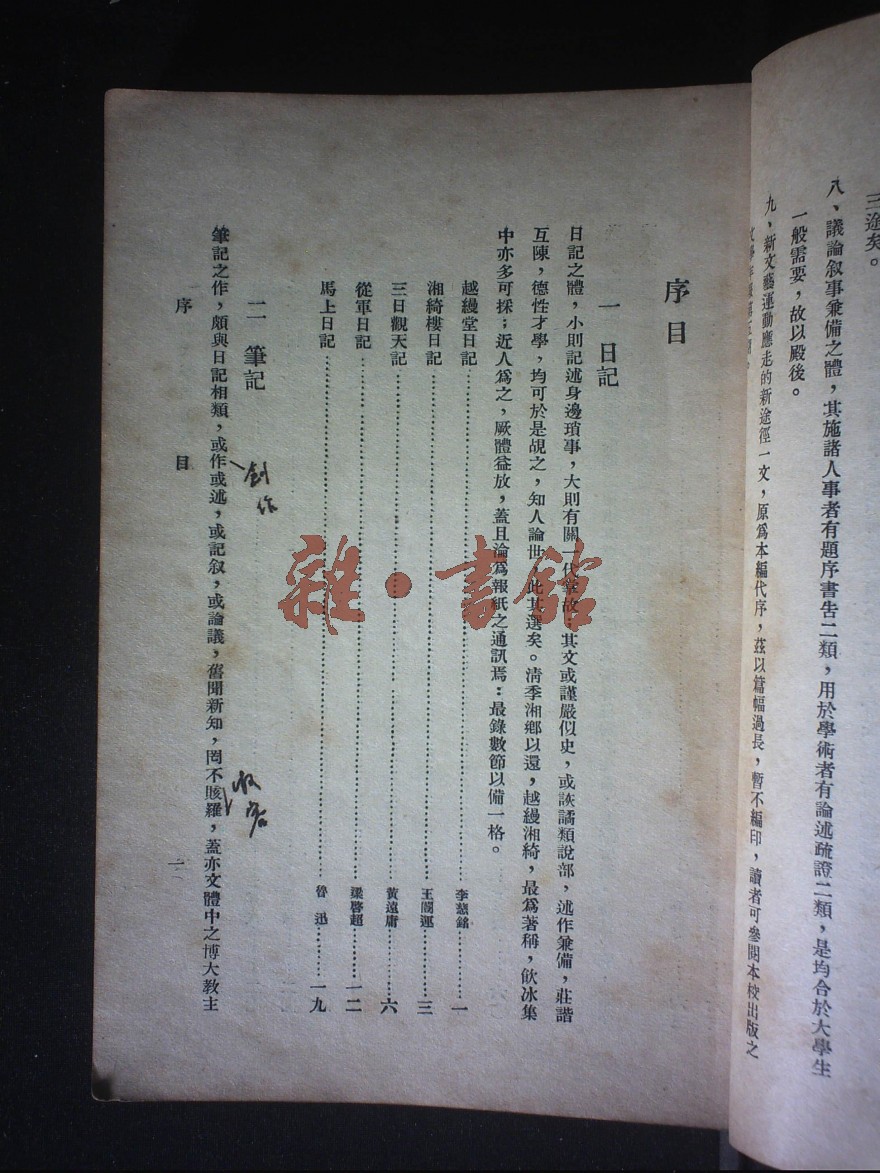 三途矣。
八、議論叙事兼備之體，其施諸人事者有題序書告二類，用於學術者有論述疏證二類，是均合於大學生
一般需要，故以殿後。
九、新文藝運動應走的新途徑一文，原爲本編代序，茲以篇幅過長，暫不編印，讀者可參閱本校出版之
序目
一 日記
日記之體，小則記述身邊瑣事，大則有關一代掌故；其文或謹嚴似史，或詼譎類說部，述作兼備，莊諧
互陳，德性才學，均可於是覘之，知人論世，此其選矣。清季湘鄉以還，越縵湘綺，最爲著稱，飲冰集
中亦多可採；近人爲之，厥體益放，蓋且淪爲報紙之通訊焉：最錄數節以備一格。
越縵堂日記 李慈銘 一
湘綺樓日記 王闓運 三
三日觀天記 黃遠庸 六
從軍日記 梁啓超 一二
馬上日記 魯迅 一九
二 筆記
創作
收容
筆記之作，頗與日記相類，或作或述，或記叙，或論議，舊聞新知，罔不賅羅，蓋亦文體中之博大教主
序目 一
雜·書館